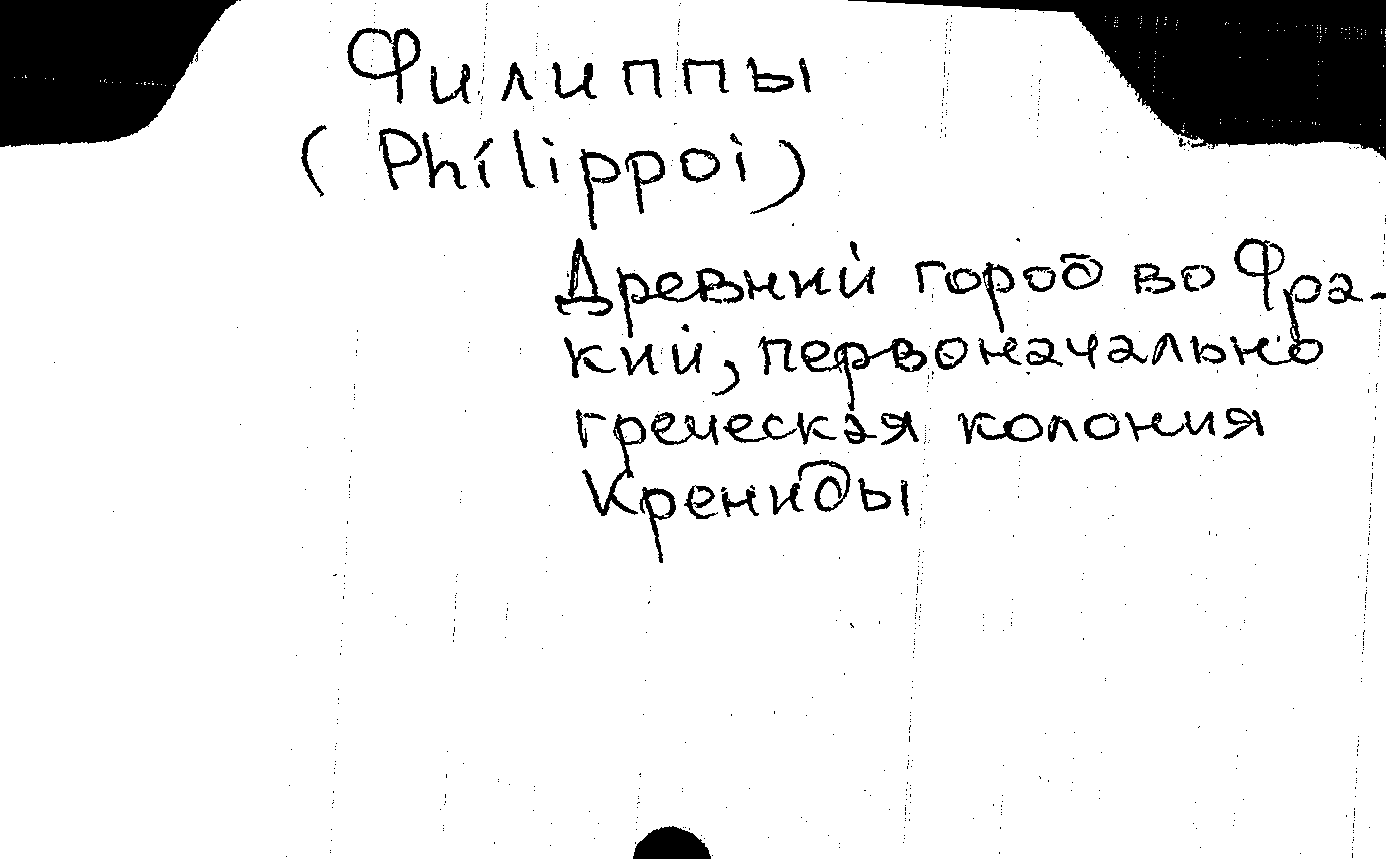 Филиппы
(Phílippoi)
Древний город во Фра-
кий, первоначально
греческая колония
Крениды